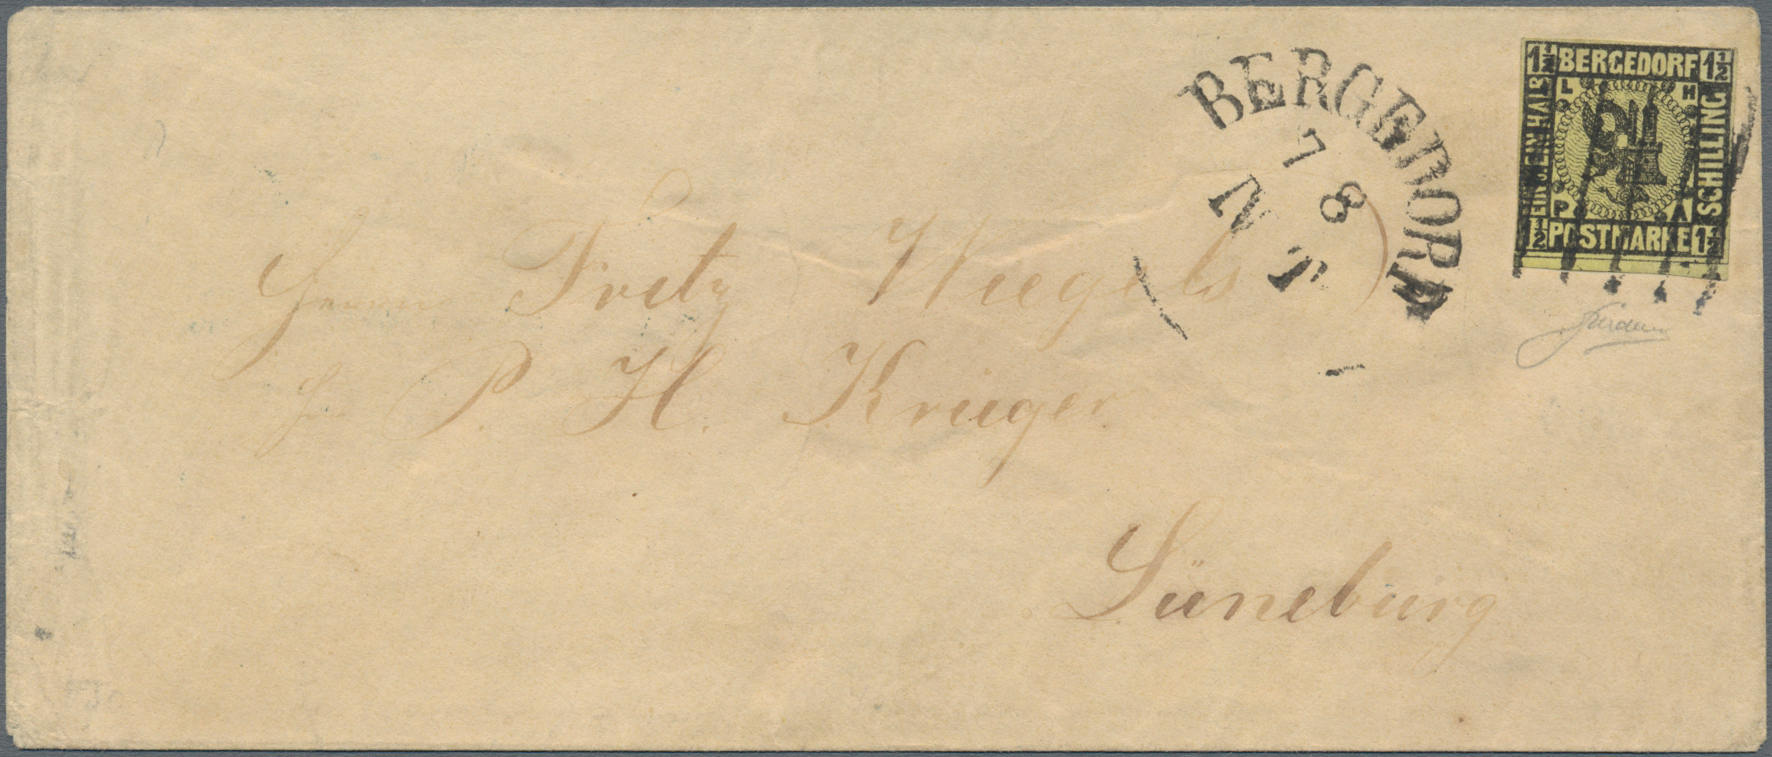 BERGEDORF
7 8
IV T
1½ BERGEDORF 1½
L H
EIN U. EIN HALB
SCHILLING
P A
1½ POSTMARKE 1½
Herrn Fritz Wiegels
P. H. Krüger
Lüneburg